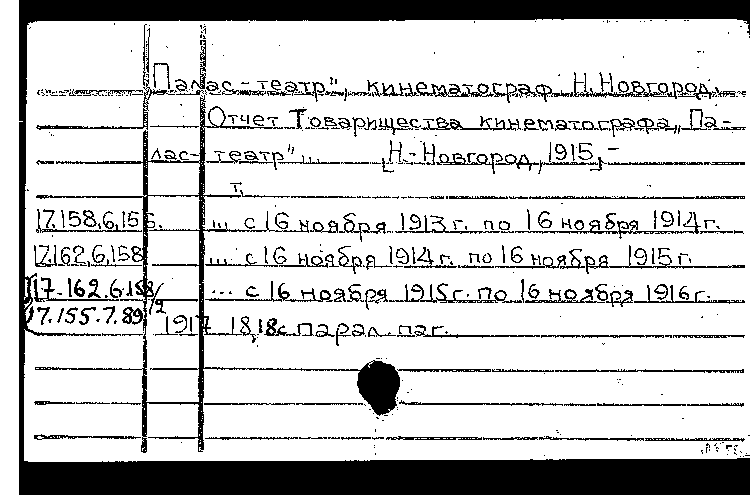 "Палас-театр", кинематограф. Н. Новгород.
Отчет Товарищества кинематографа „Па-
лас-театр"... [Н.-Новгород, 1915].-
т.
17.158.6.156. ... с 16 ноября 1913 г. по 16 ноября 1914 г.
17.162.6.158 ... с 16 ноября 1914 г. по 16 ноября 1915 г.
17.162.6.158/2 ... с 16 ноября 1915 г. по 16 ноября 1916 г.
17.155.7.89 1917 18,18с. парал. паг.